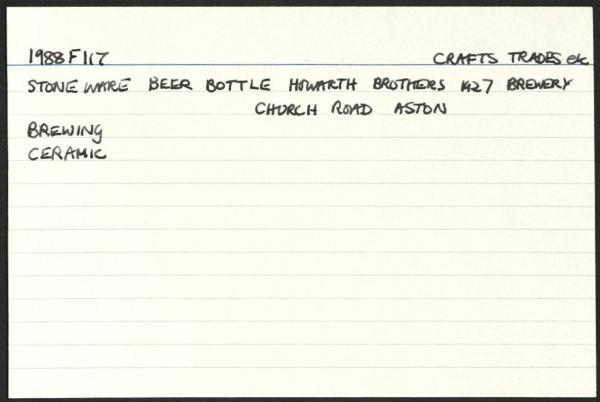 1988 F 117 CRAFTS TRADES etc
STONEWARE BEER BOTTLE HOWARTH BROTHERS 1427 BREWERY
CHURCH ROAD ASTON
BREWING
CERAMIC